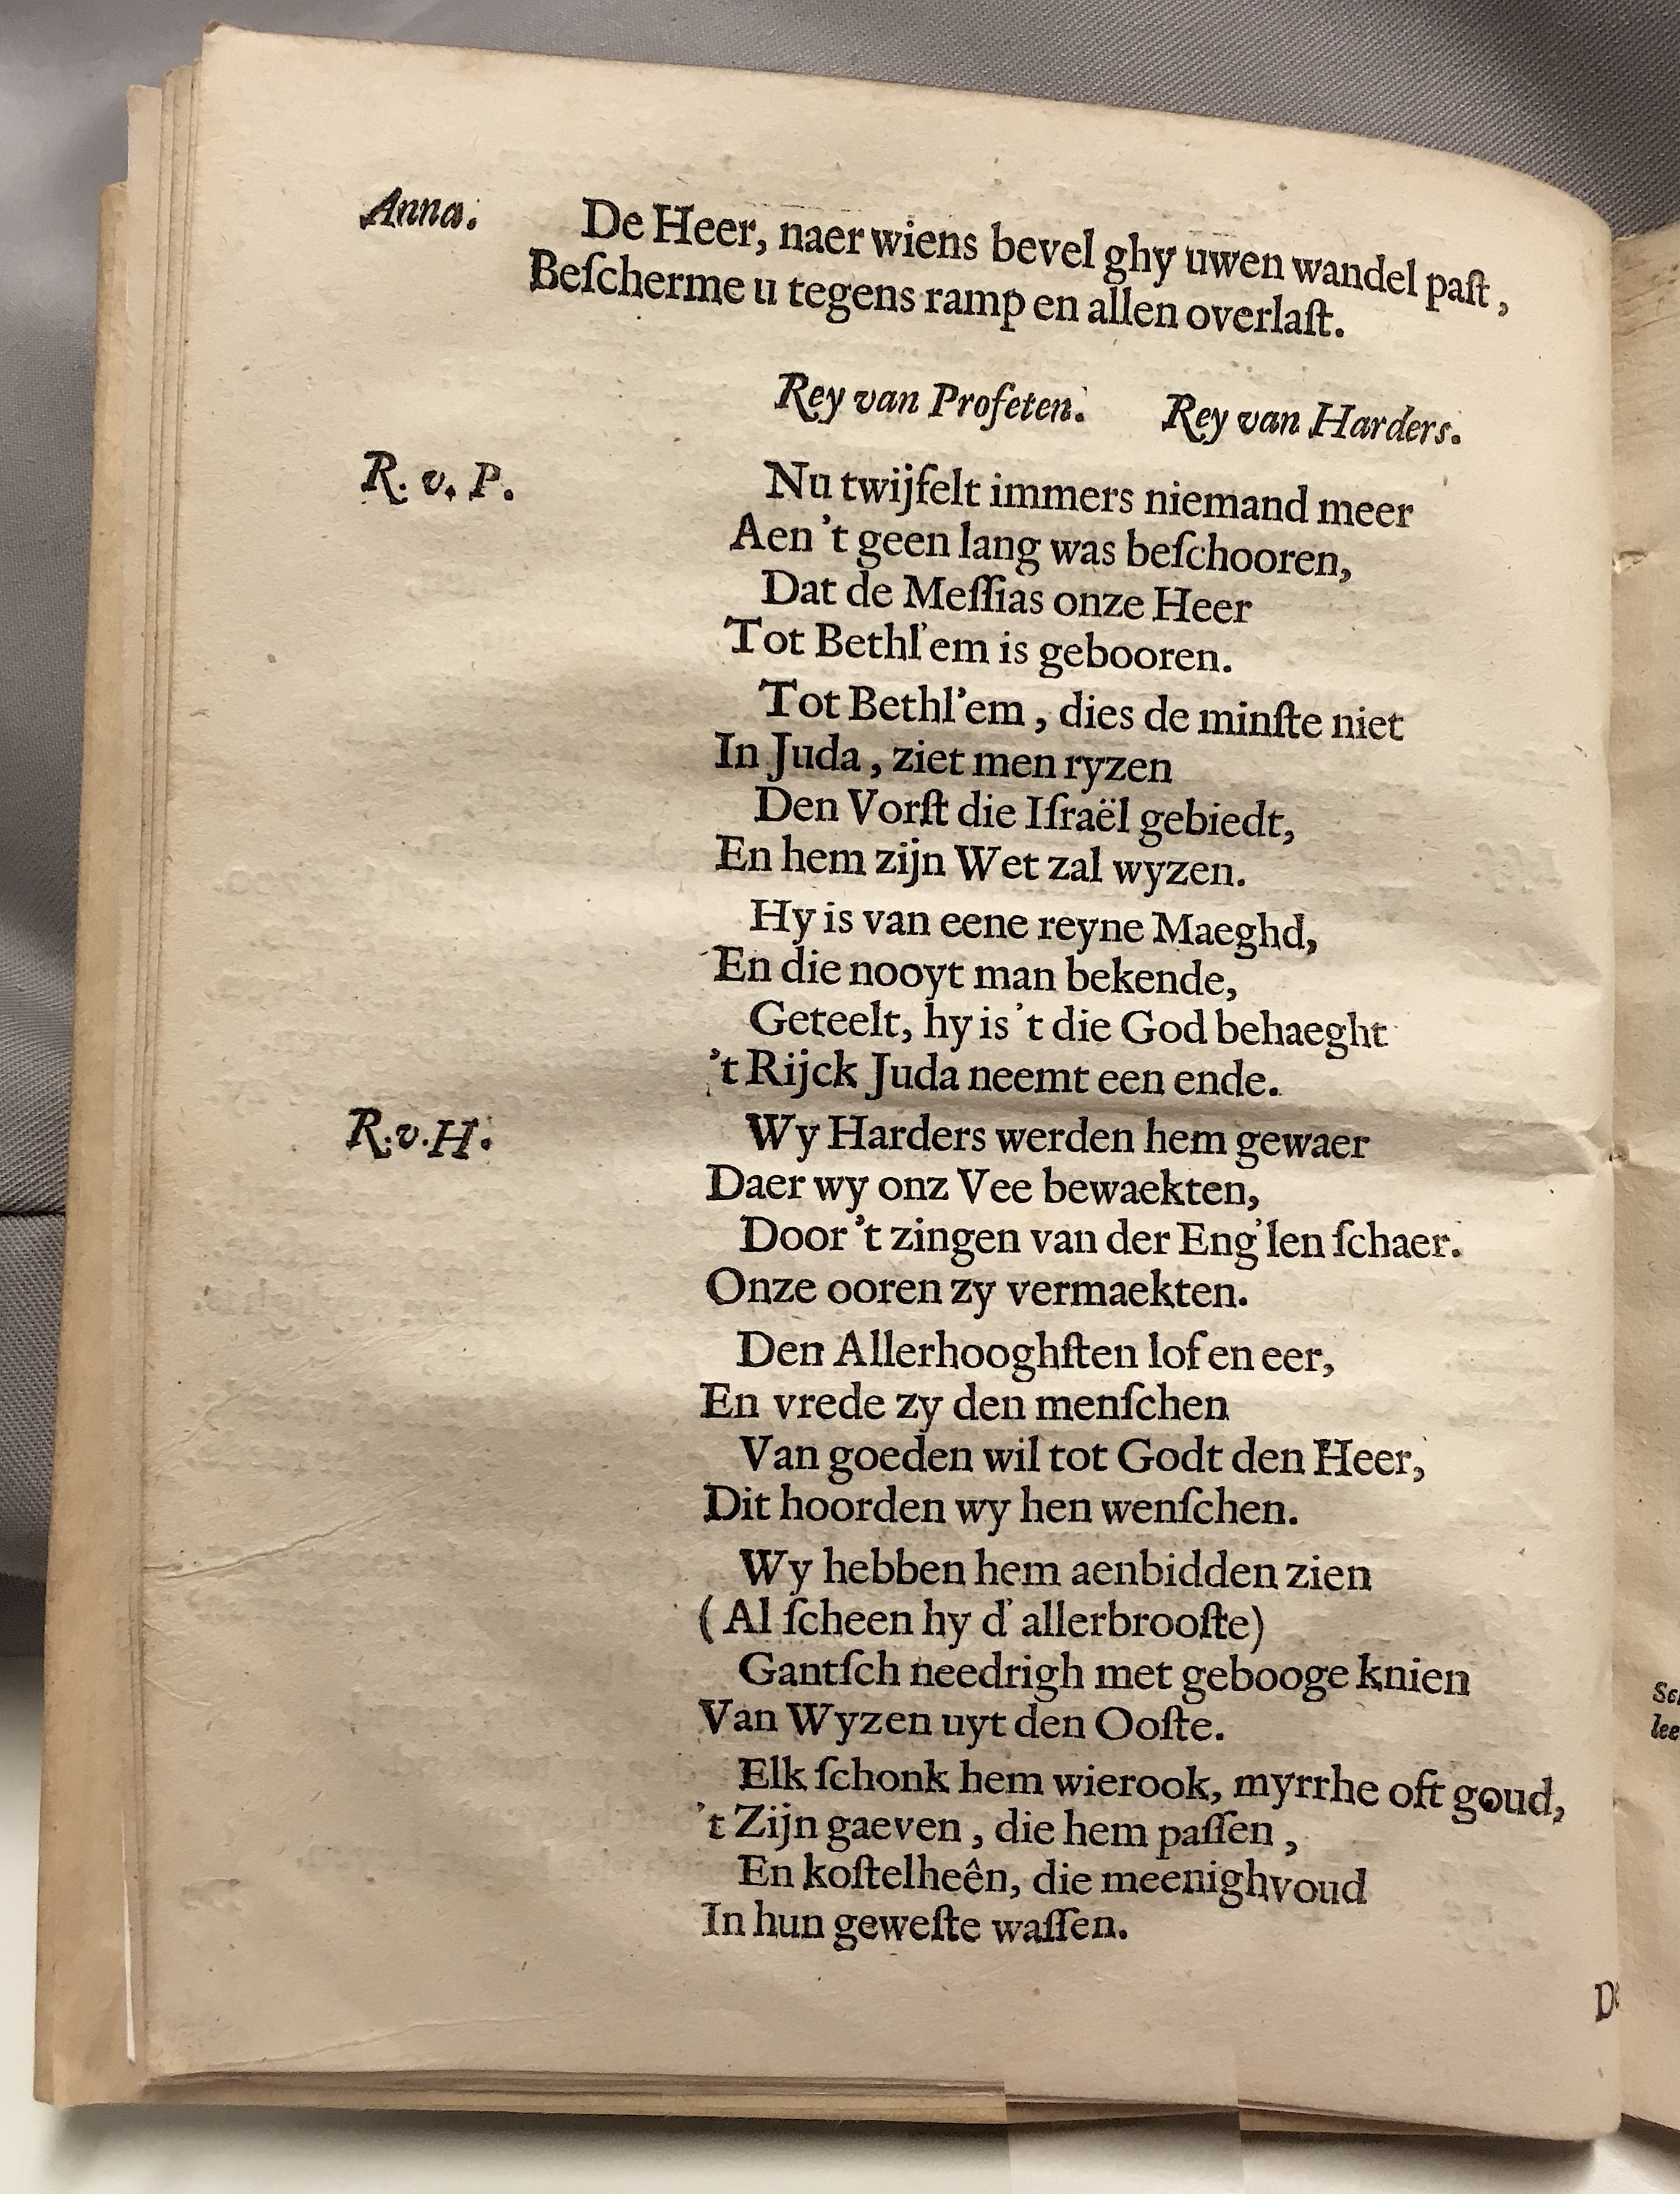 Anna. De Heer, naer wiens bevel ghy uwen wandel paſt,
Beſcherme u tegens ramp en allen overlaſt.
Rey van Profeten. Rey van Harders.
R. v. P. Nu twijfelt immers niemand meer
Aen 't geen lang was beſchooren,
Dat de Meſſias onze Heer
Tot Bethl'em is gebooren.
Tot Bethl'em, dies de minſte niet
In Juda, ziet men ryzen
Den Vorſt die Iſraël gebiedt,
En hem zijn Wet zal wyzen.
Hy is van eene reyne Maeghd,
En die nooyt man bekende,
Geteelt, hy is 't die God behaeght
't Rijck Juda neemt een ende.
R. v. H. Wy Harders werden hem gewaer
Daer wy onz Vee bewaekten,
Door 't zingen van der Eng'len ſchaer.
Onze ooren zy vermaekten.
Den Allerhooghſten lof en eer,
En vrede zy den menſchen
Van goeden wil tot Godt den Heer,
Dit hoorden wy hen wenſchen.
Wy hebben hem aenbidden zien
(Al ſcheen hy d' allerbrooſte)
Gantſch needrigh met gebooge knien
Van Wyzen uyt den Ooſte.
Elk ſchonk hem wierook, myrrhe oft goud,
't Zijn gaeven, die hem paſſen,
En koſtelheên, die meenighvoud
In hun geweſte waſſen.